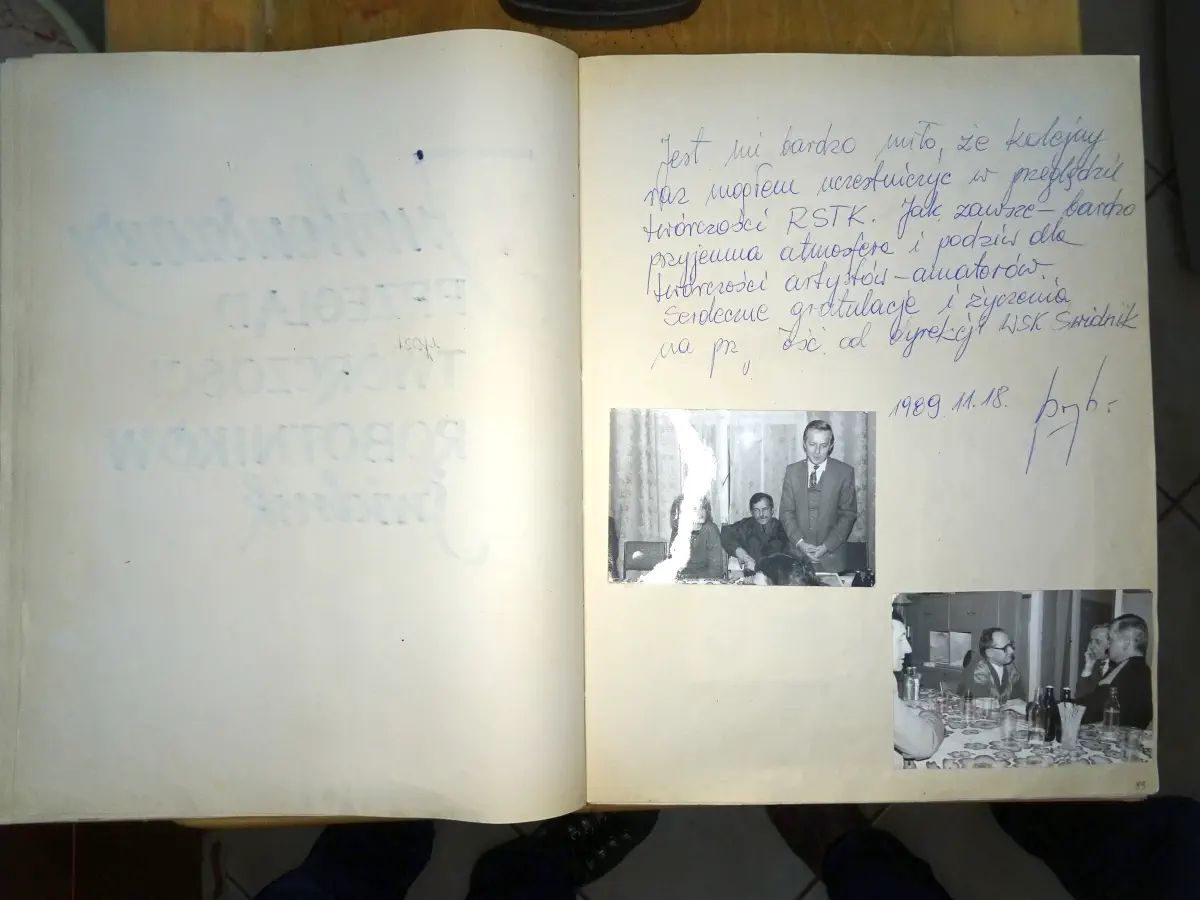 PRZEGLĄD
TWÓRCZOŚCI
ROBOTNIKÓW
Jest mi bardzo miło, że kolejny
raz mogłem uczestniczyć w przeglądzie
twórczości RSTK. Jak zawsze - bardzo
przyjemna atmosfera i podziw dla
twórczości artystów-amatorów.
Serdeczne gratulacje i życzenia
na przyszłość od Dyrekcji WSK Świdnik
1989.11.18.